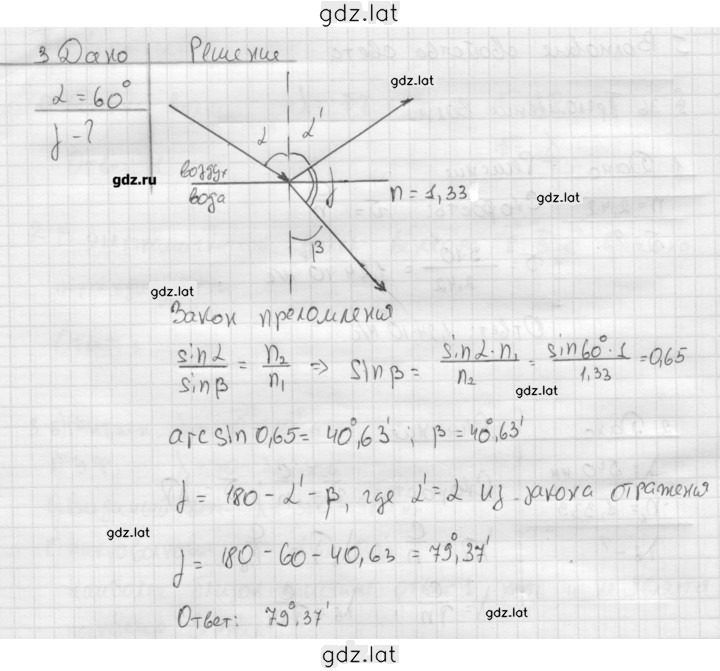 gdz.lat
3 Дано Решение
gdz.lat
α = 60°
γ - ?
α α'
воздух
gdz.ru
вода
γ n = 1,33
gdz.lat
β
gdz.lat
Закон преломления
sinα / sinβ = n₂ / n₁ => sinβ = sinα · n₁ / n₂ = sin60° · 1 / 1,33 = 0,65
gdz.lat
arcsin 0,65 = 40°,63' ; β = 40°,63'
γ = 180 - α' - β, где α' = α из закона отражения
gdz.lat
γ = 180 - 60 - 40,63 = 79°,37'
Ответ: 79°,37'
gdz.lat
gdz.lat